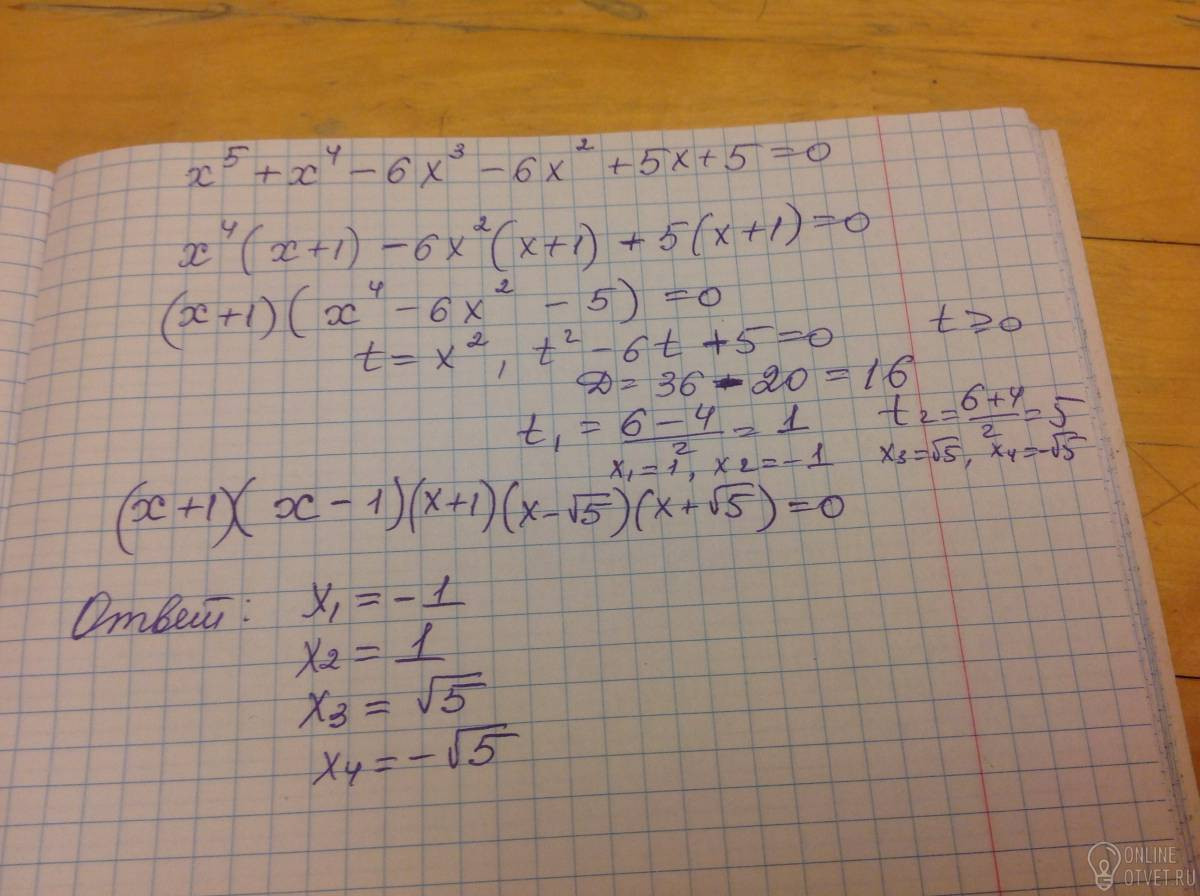 x⁵ + x⁴ - 6x³ - 6x² + 5x + 5 = 0
x⁴(x+1) - 6x²(x+1) + 5(x+1) = 0
(x+1)(x⁴ - 6x² - 5) = 0
t = x², t² - 6t + 5 = 0 t ≥ 0
D = 36 - 20 = 16
t₁ = (6-4)/2 = 1 t₂ = (6+4)/2 = 5
x₁ = 1, x₂ = -1 x₃ = √5, x₄ = -√5
(x+1)(x-1)(x+1)(x-√5)(x+√5) = 0
Ответ: x₁ = -1
x₂ = 1
x₃ = √5
x₄ = -√5
ONLINE
OTVET.RU